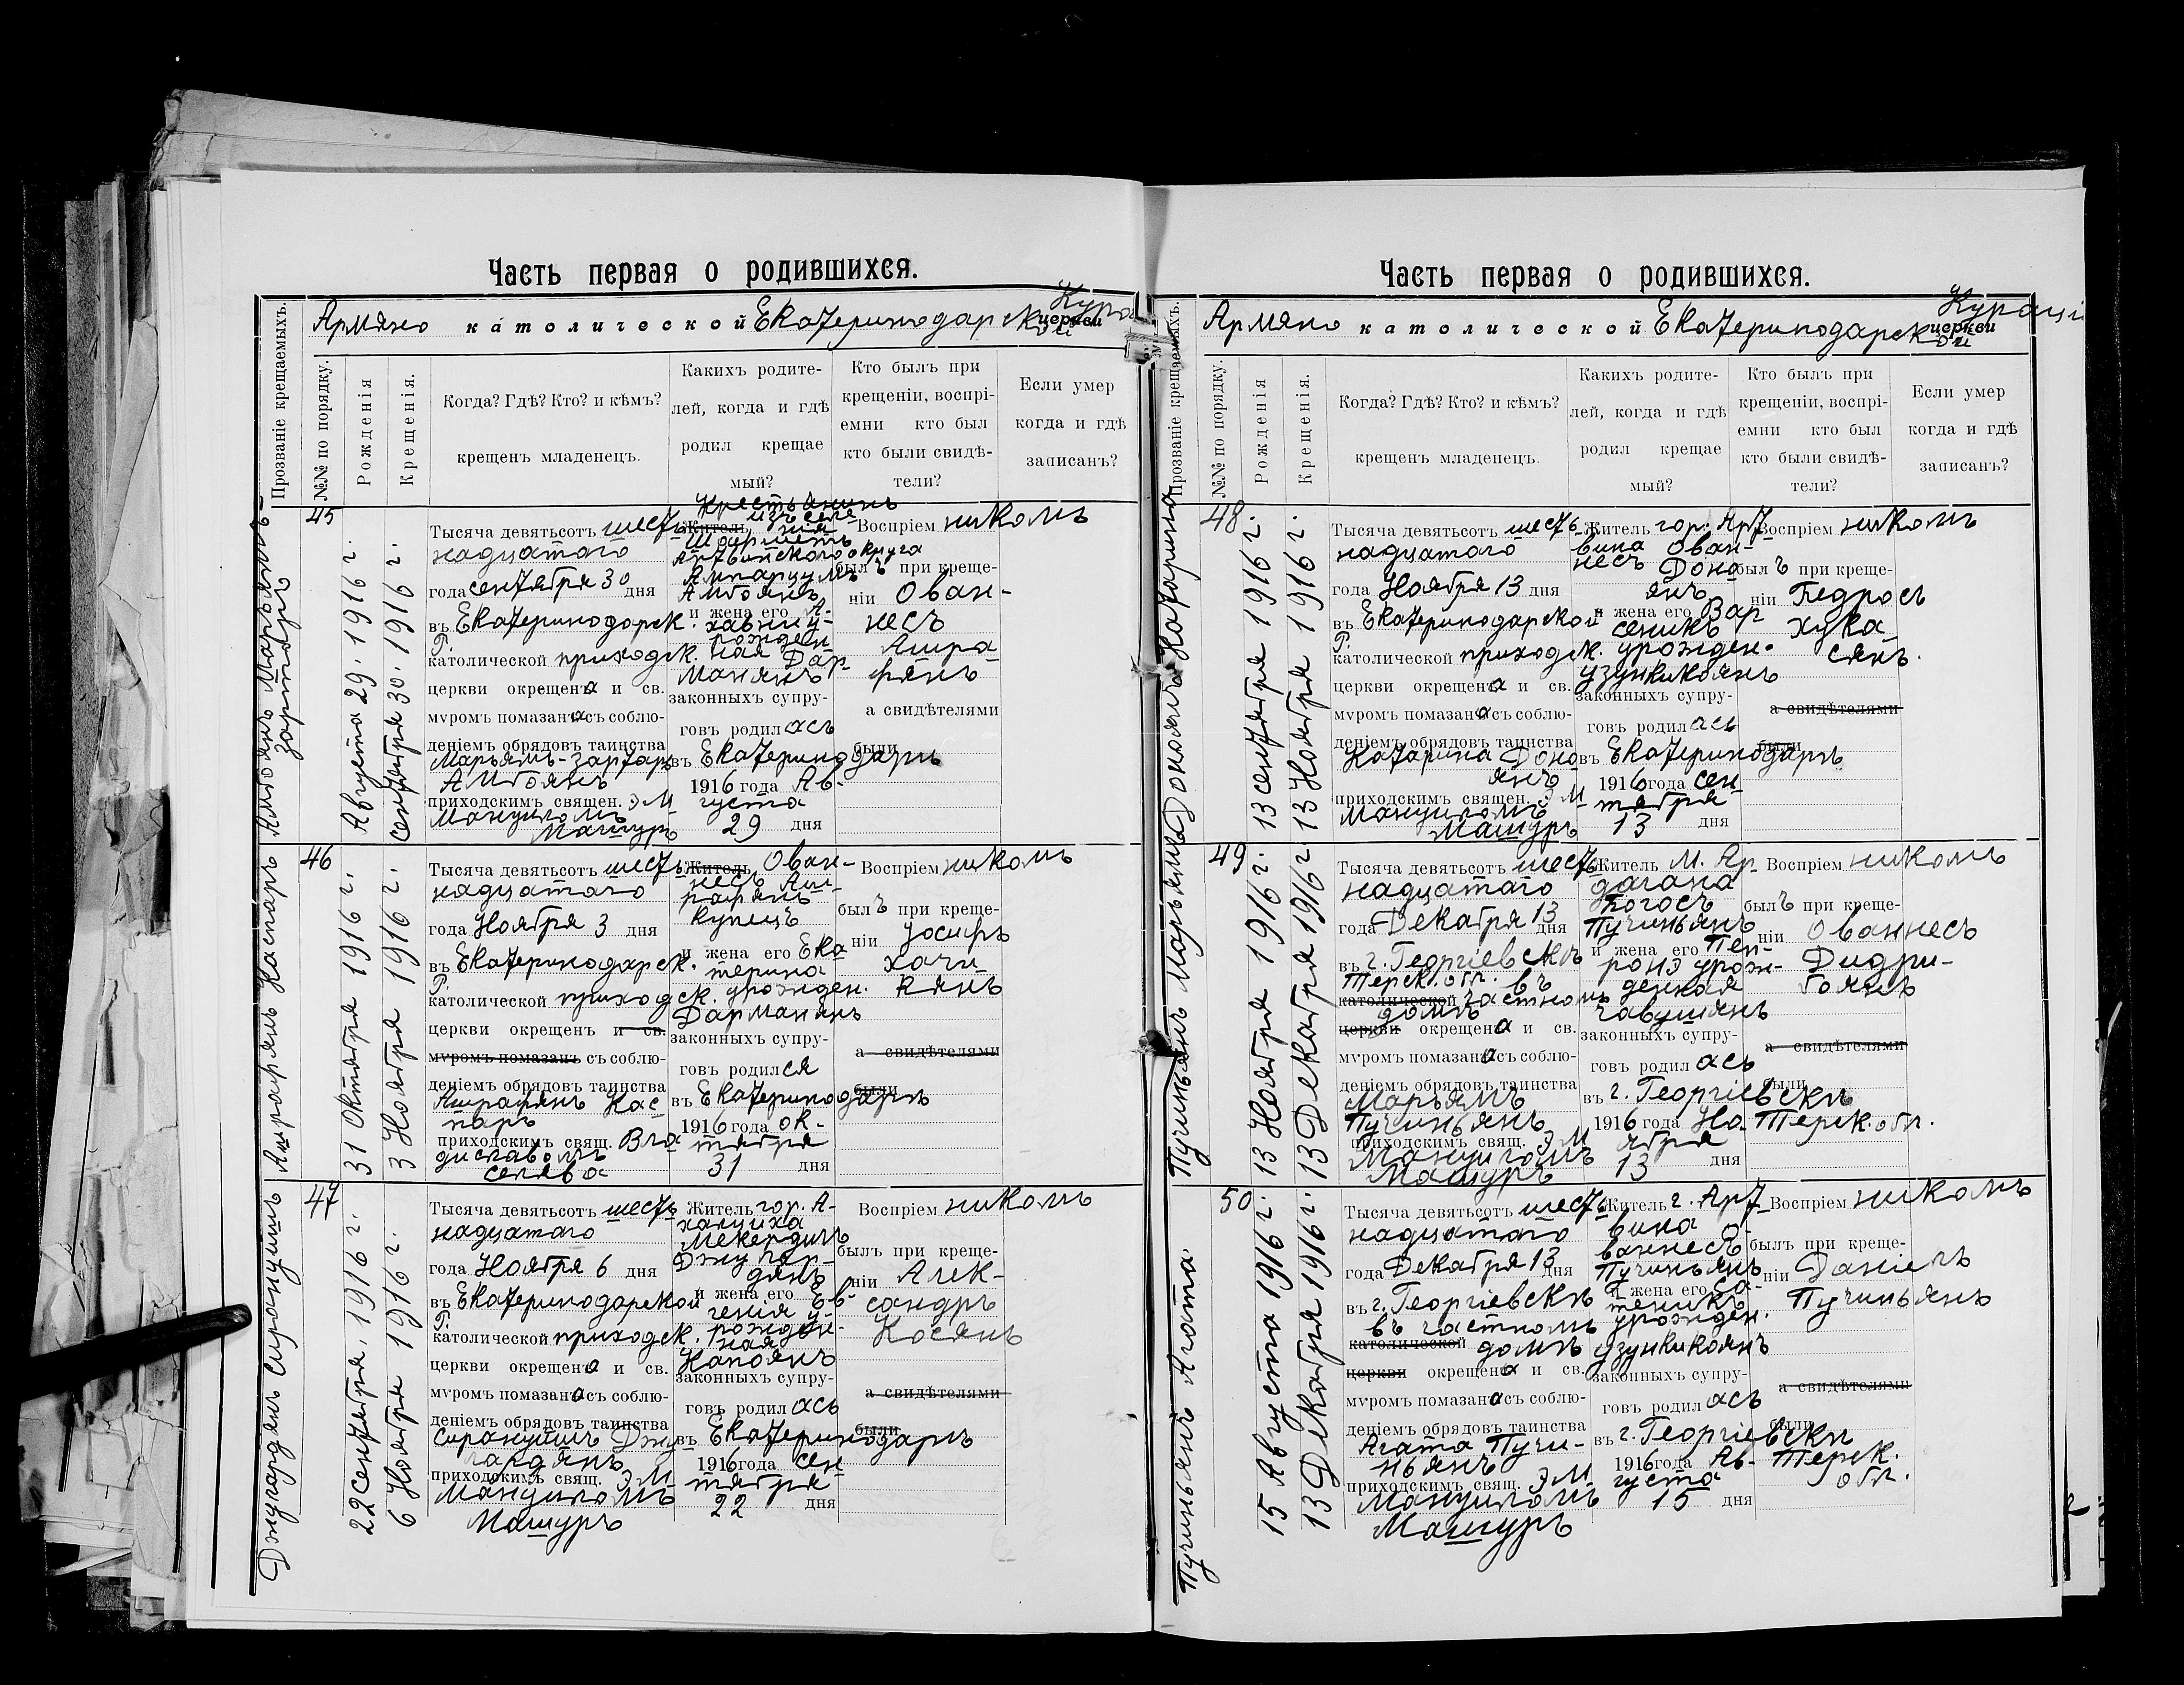 Часть первая о родившихся.
Армяно католической Екатеринодарской церкви
Прозваніе крещаемыхъ.
№№ по порядку.
Рожденія
Крещенія.
Когда? Гдѣ? Кто? и кѣмъ?
крещенъ младенецъ.
Какихъ родите-
лей, когда и гдѣ
родил крещае
мый?
Кто былъ при
крещеніи, воспрі-
емни кто был
кто были свидѣ-
тели?
Если умер
когда и гдѣ
записанъ?
Амбоянъ Марьямъ-
Зартаръ
45
Августа 29. 1916 г.
Сентября 30. 1916 г.
Тысяча девятьсот шесть
надцатаго
года Сентября 30 дня
въ Екатеринодарск.
Р.
католической приходск.
церкви окрещена и св.
мѵромъ помазана съ соблю-
деніемъ обрядовъ таинства
Марьямъ-Зартаръ
Амбоянъ
приходскимъ священ. Эм
мануиломъ
Машуръ
Крестьянинъ
изъ селе
нія
Житель
Артвинскаго округа
Амбоянъ
и жена его А-
рожден-
ная Дар-
манянъ
законныхъ супру-
говъ родилась
въ Екатеринодарѣ
1916 года Ав-
густа
29 дня
Воспріем никомъ
былъ при креще-
ніи Ован-
несъ
Ашра-
фянъ
а свидѣтелями
были
Ашрафянъ Каспаръ
46
31 Октября 1916 г.
3 Ноября 1916 г.
Тысяча девятьсот шесть
надцатаго
года Ноября 3 дня
въ Екатеринодарск.
Р.
католической приходск.
церкви окрещенъ и св.
мѵромъ помазанъ съ соблю-
деніемъ обрядовъ таинства
Ашрафянъ Кас
паръ
приходскимъ свящ. Вла
диславомъ
Селява
Житель Ован-
несъ Аш-
рафянъ
купецъ
и жена его Ека
терина
урожден.
Дарманянъ
законныхъ супру-
говъ родился
въ Екатеринодарѣ
1916 года Ок-
тября
31 дня
Воспріем никомъ
былъ при креще-
ніи Іосифъ
Хачи-
кянъ
а свидѣтелями
были
Джугардянъ Сиранушъ
47
22 Сентября. 1916 г.
6 Ноября 1916 г.
Тысяча девятьсот шесть
надцатаго
года Ноября 6 дня
въ Екатеринодарской
Р.
католической приходск.
церкви окрещена и св.
мѵромъ помазана съ соблю-
деніемъ обрядовъ таинства
Сиранушъ Джу
гардянъ
приходскимъ свящ. Эм
мануиломъ
Машуръ
Житель гор. А-
халциха
Джугар-
дянъ
и жена его Ев-
генія у-
рожден-
ная
Капоянъ
законныхъ супру-
говъ родилась
въ Екатеринодарѣ
1916 года Сен
тября
22 дня
Воспріем никомъ
былъ при креще-
ніи Алек-
сандръ
Косянъ
а свидѣтелями
были
Часть первая о родившихся.
Армяно католической Екатеринодарской церкви Кураціи
Прозваніе крещаемыхъ.
№№ по порядку.
Рожденія
Крещенія.
Когда? Гдѣ? Кто? и кѣмъ?
крещенъ младенецъ.
Какихъ родите-
лей, когда и гдѣ
родил крещае
мый?
Кто былъ при
крещеніи, воспрі-
емни кто был
кто были свидѣ-
тели?
Если умер
когда и гдѣ
записанъ?
Доноянъ Катарина
48
13 Сентября 1916 г.
13 Ноября 1916 г.
Тысяча девятьсот шесть
надцатаго
года Ноября 13 дня
въ Екатеринодарской
Р.
католической приходск.
церкви окрещена и св.
мѵромъ помазана съ соблю-
деніемъ обрядовъ таинства
Катарина Доно
янъ
приходскимъ священ. Эм
мануиломъ
Машуръ
Житель гор. Арт-
вина Ован-
несъ Доно
янъ
и жена его Вар
сеникъ
урожден.
Узункикоянъ
законныхъ супру-
говъ родилась
въ Екатеринодарѣ
1916 года Сен-
тября
13 дня
Воспріем никомъ
былъ при креще-
ніи Бедросъ
Хука-
сянъ.
а свидѣтелями
были
Пучиньянъ Марьямъ
49
13 Ноября 1916 г.
13 Декабря 1916 г.
Тысяча девятьсот шесть
надцатаго
года Декабря 13 дня
въ г. Георгіевскѣ
Терск. обл. въ
католической частномъ
домѣ
церкви окрещена и св.
мѵромъ помазана съ соблю-
деніемъ обрядовъ таинства
Марьямъ
Пучиньянъ
приходскимъ свящ. Эм
мануиломъ
Машуръ
Житель м. Ар-
дагана
Погосъ
Пучиньянъ
и жена его Пе
ронэ урож-
денная
Чавушянъ
законныхъ супру-
говъ родилась
въ г. Георгіевскѣ
1916 года Но- Терск. обл.
ября
13 дня
Воспріем никомъ
былъ при креще-
ніи Ованнесъ
Дидри-
боянъ
а свидѣтелями
были
Пучиньянъ Агата.
50
15 Августа 1916 г.
13 Декабря 1916 г.
Тысяча девятьсот шесть
надцатаго
года Декабря 13 дня
въ г. Георгіевскѣ
въ частномъ
католической домѣ
церкви окрещена и св.
мѵромъ помазана съ соблю-
деніемъ обрядовъ таинства
Агата Пучи-
ньянъ
приходскимъ свящ. Эм
мануиломъ
Машуръ
Житель г. Арт-
вина
Пучиньянъ
и жена его
урожден.
Узункикоянъ
законныхъ супру-
говъ родилась
въ г. Георгіевскѣ
1916 года Ав- Терск.
густа обл.
15 дня
Воспріем никомъ
былъ при креще-
ніи Даніелъ
Пучиньянъ
а свидѣтелями
были